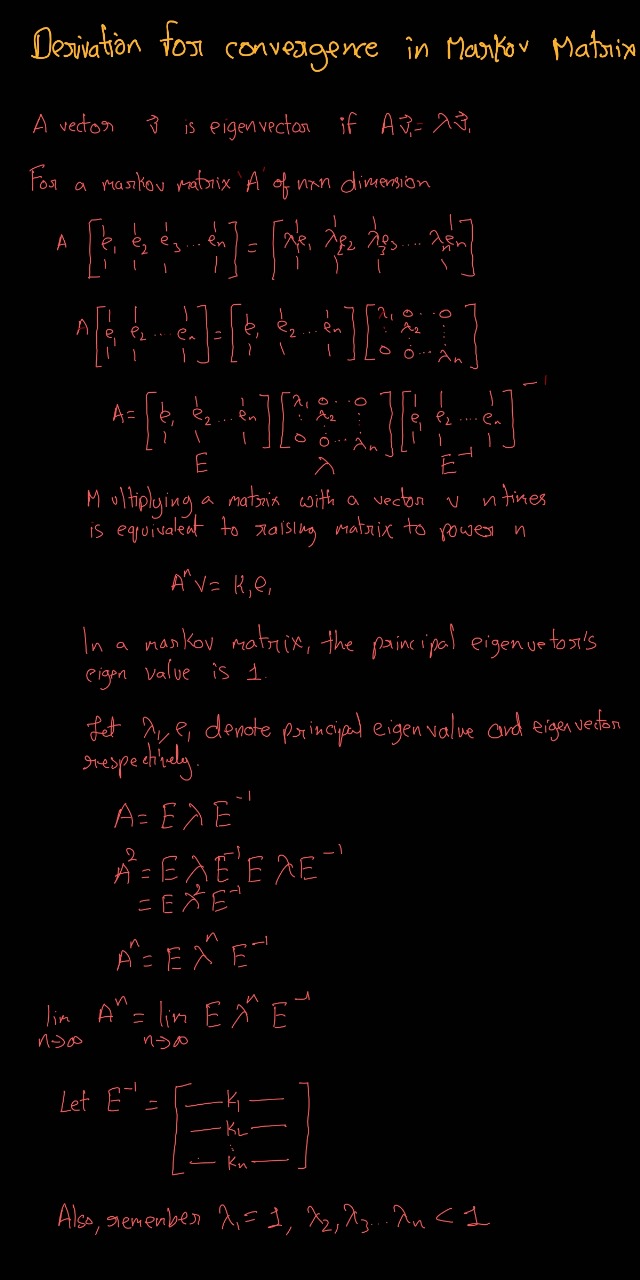 Derivation for convergence in Markov Matrix
A vector v⃗ is eigenvector if Av⃗₁= λv⃗₁
For a markov matrix 'A' of nxn dimension
A [e₁ e₂ e₃ ... eₙ] = [λe₁ λe₂ λe₃ .... λeₙ]
A [e₁ e₂ .... eₙ] = [e₁ e₂ ... eₙ] [λ₁ 0 .. 0 : λ₂ : 0 0 ... λₙ]
A= [e₁ e₂ ... eₙ] [λ₁ 0 .. 0 : λ₂ : 0 0 ... λₙ] [e₁ e₂ .... eₙ]⁻¹
E λ E⁻¹
Multiplying a matrix with a vector v n times
is equivalent to raising matrix to power n
Aⁿv = K₁e₁
In a markov matrix, the principal eigenvetor's
eigen value is 1.
Let λ₁, e₁ denote principal eigen value and eigen vector
respectively.
A = E λ E⁻¹
A² = E λ E⁻¹ E λ E⁻¹
= E λ² E⁻¹
Aⁿ = E λⁿ E⁻¹
lim Aⁿ = lim E λⁿ E⁻¹
n→∞ n→∞
Let E⁻¹ = [— K₁ — — K₂ — : — Kₙ —]
Also, remember λ₁ = 1, λ₂, λ₃ ... λₙ < 1